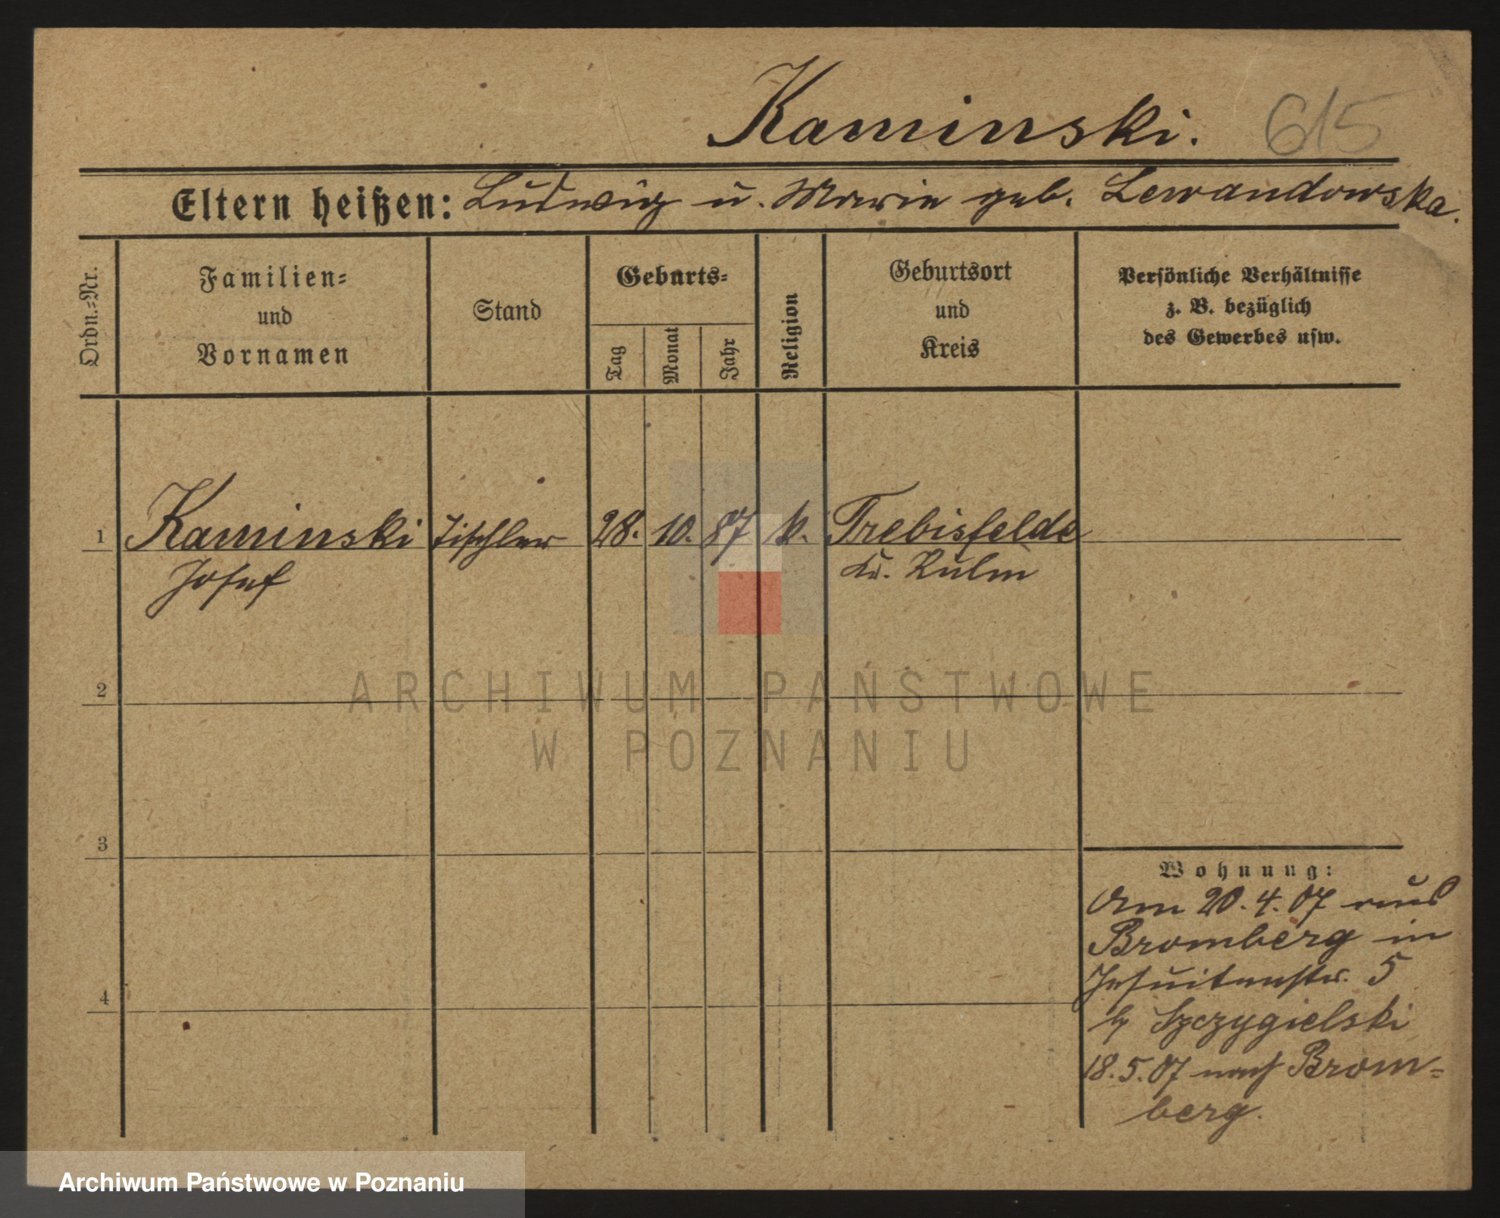 Kaminski. 615
Eltern heißen: Ludwig u. Marie geb. Lewandowska.
Ordn.-Nr.
Familien-
und
Vornamen
Stand
Geburts-
Tag
Monat
Jahr
Religion
Geburtsort
und
Kreis
Persönliche Verhältnisse
z. B. bezüglich
des Gewerbes usw.
1 Kaminski Tischler 28. 10. 87 k. Trebisfelde
Josef Kr. Kulm
2
3
4
Wohnung:
Am 20.4.07 aus
Bromberg in
Jesuitenstr. 5
b/ Szczygielski
18.5.07 nach Brom-
berg.
ARCHIWUM PAŃSTWOWE
W POZNANIU
Archiwum Państwowe w Poznaniu